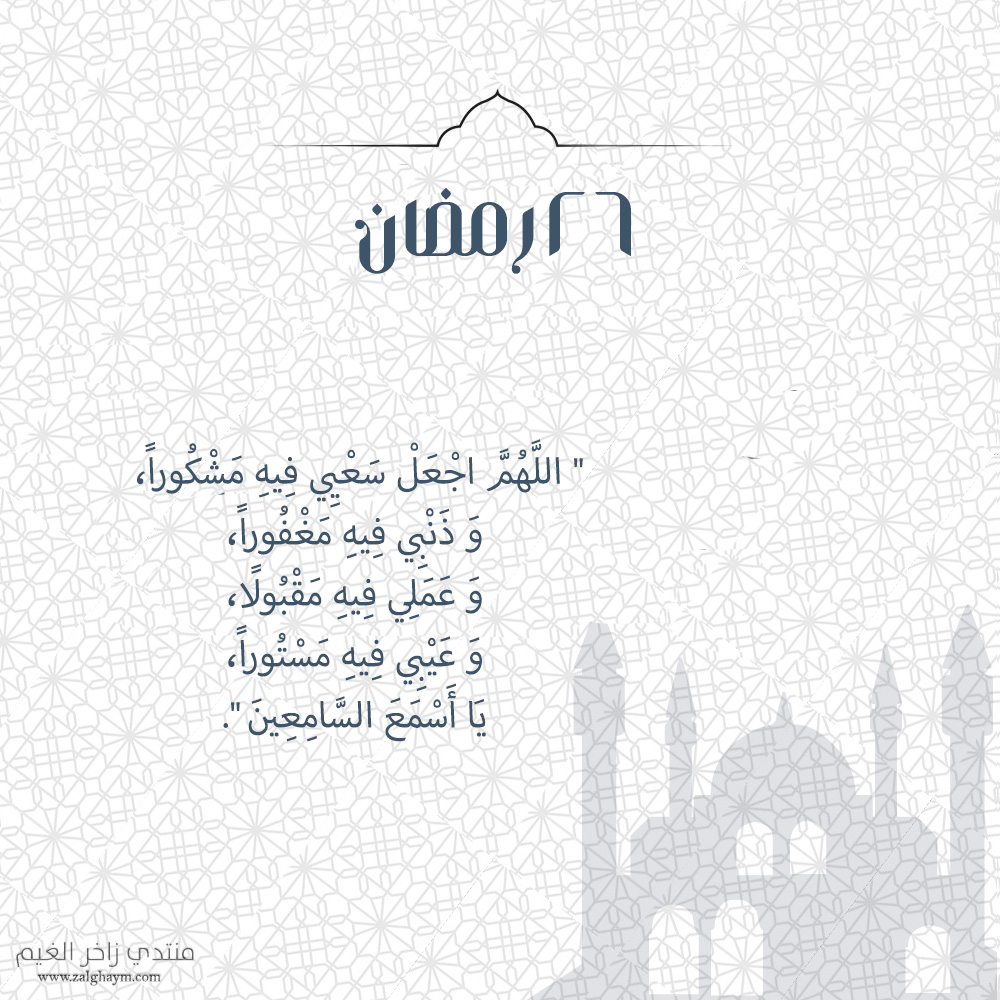 ٢٦ رمضان
" اللَّهُمَّ اجْعَلْ سَعْيِي فِيهِ مَشْكُوراً،
وَ ذَنْبِي فِيهِ مَغْفُوراً،
وَ عَمَلِي فِيهِ مَقْبُولًا،
وَ عَيْبِي فِيهِ مَسْتُوراً،
يَا أَسْمَعَ السَّامِعِينَ ".
منتدي زاخر الغيم
www.zalghaym.com